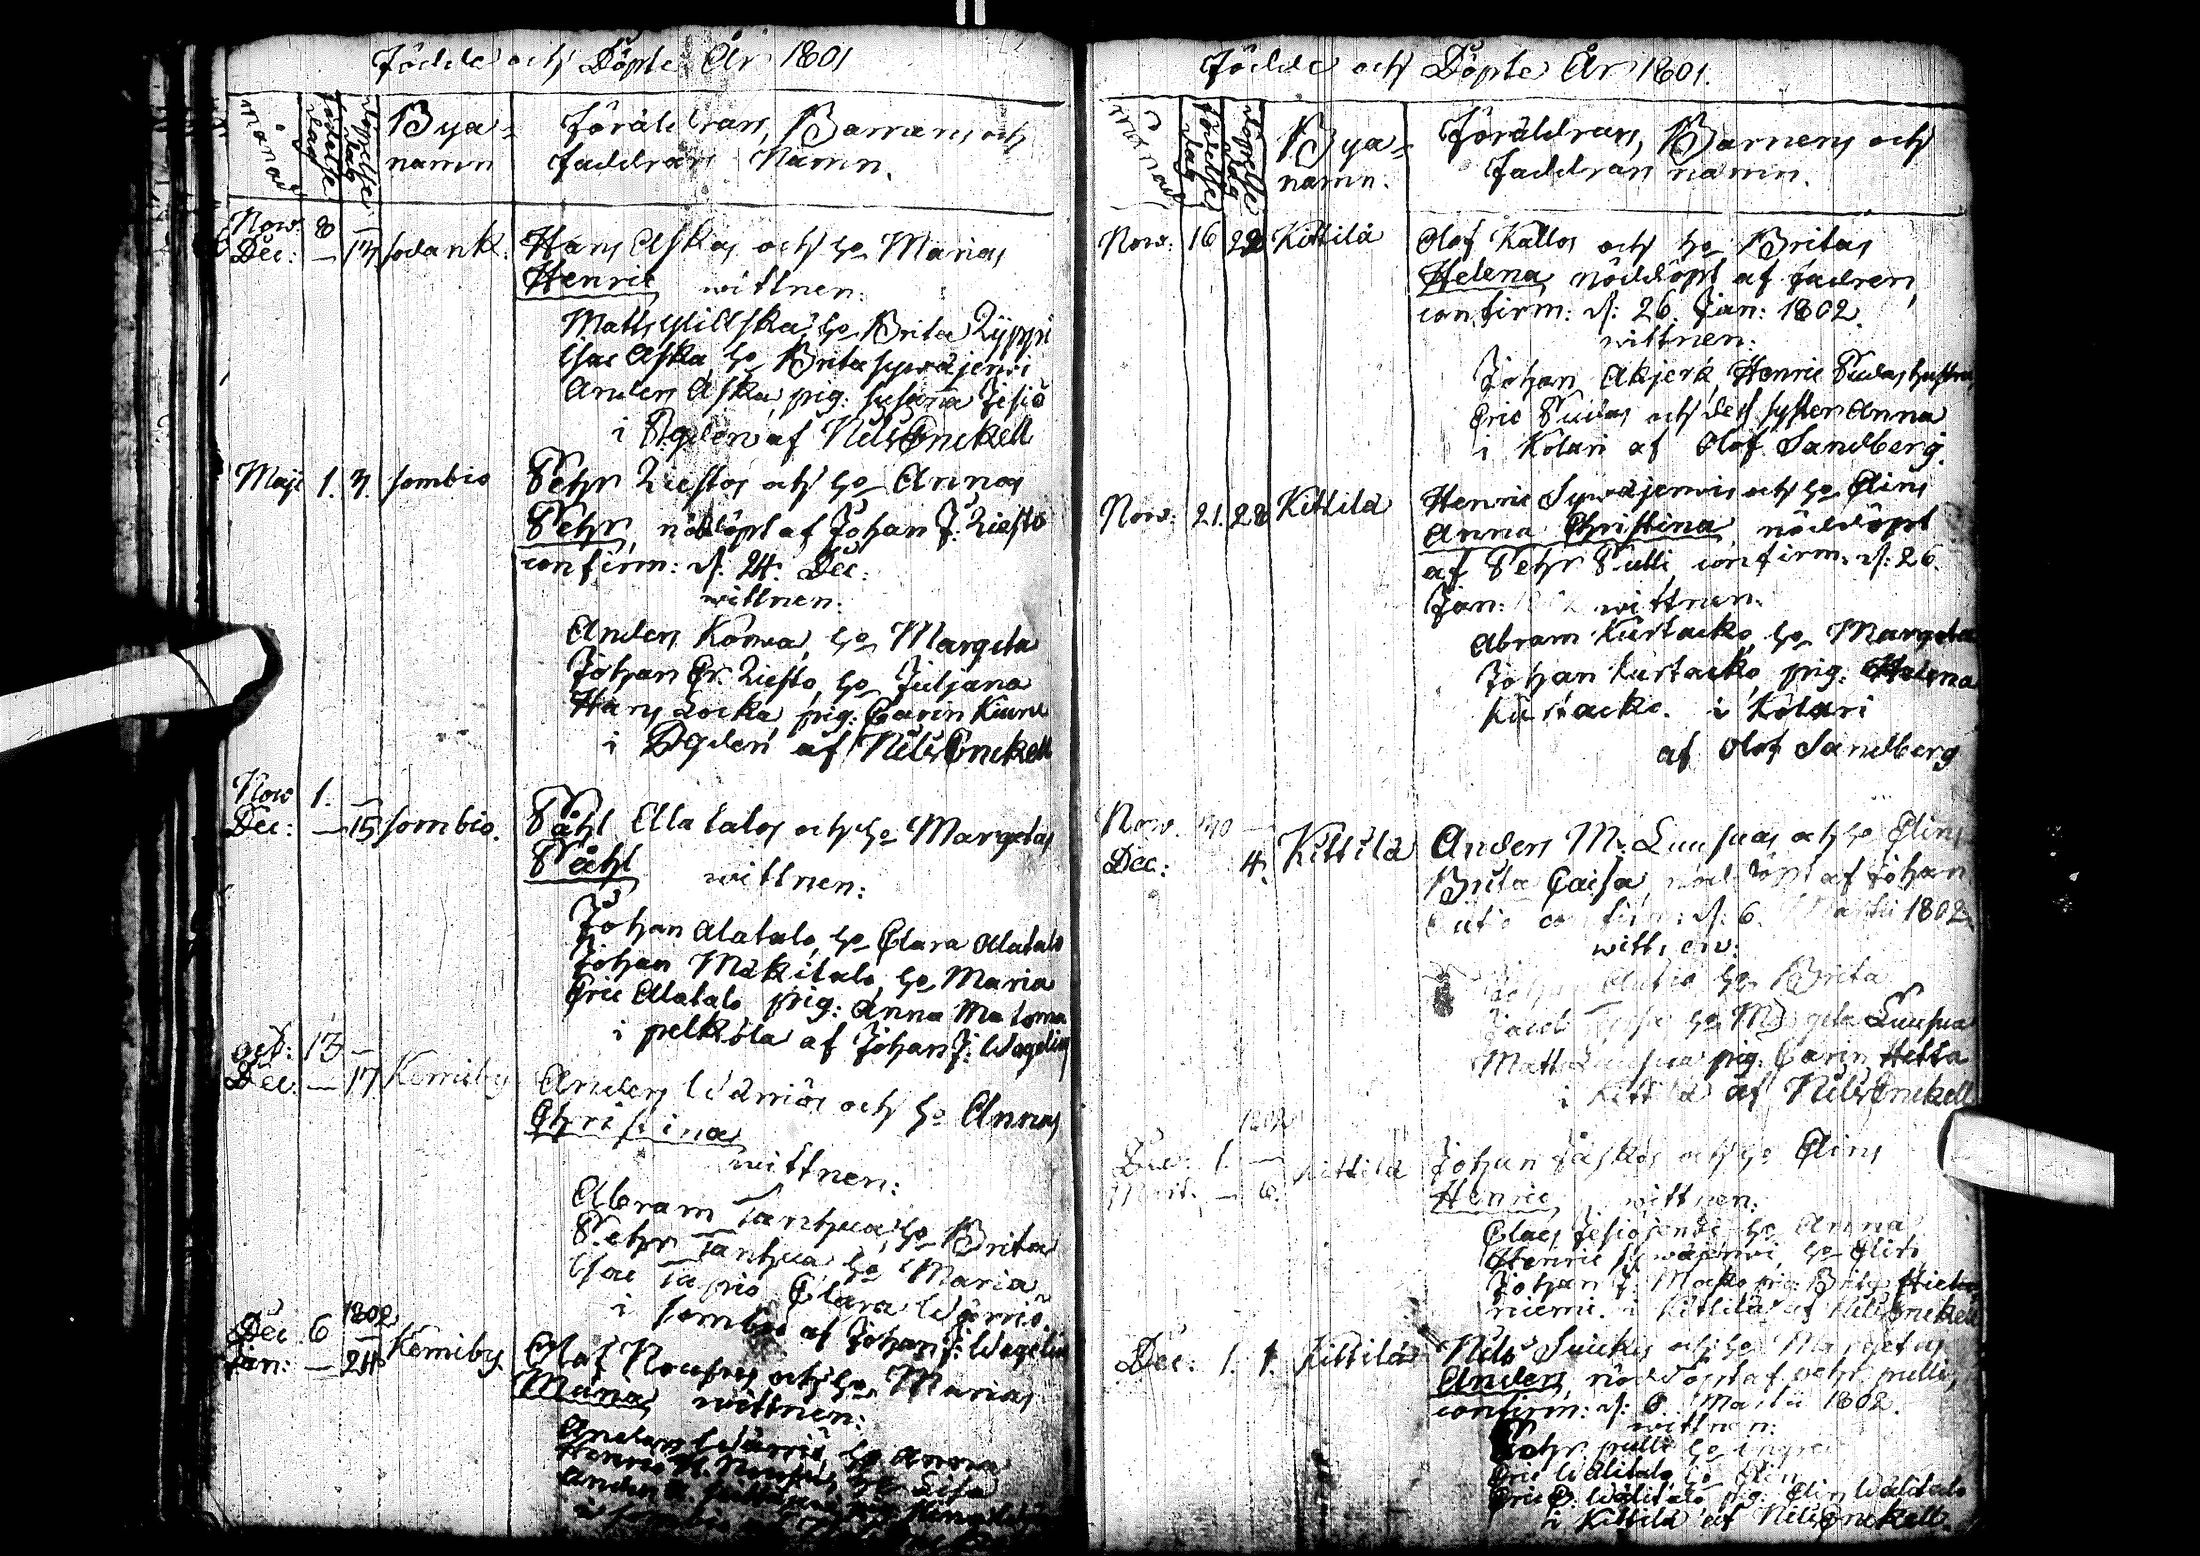 Födde och Döpte År 1801
månad
födelse dag
döpelse dag
Bya=
namn
Föräldrars, Barnens och
faddrars Namn.
Now: 8 —
Dec: — 13 sodank:
Hans Askas och ho Marias
Henric wittnen:
Matts ho Brita Zyppi
Isac Aska, ho Brita sywäjerwi
Anders Aska, pig: susanna Jesiö
i af Nils Enckell
Maji 1. 3. sombio
Pehr Liestos och ho Annas
Pehr, nöddöpt af Johan J: Liesto
confirm: d: 24. Dec:
wittnen:
Anders Korwa, ho Margeta
Johan Er. Liesto, ho Juljana
Hans Locka, pig: Carin Kiuru
i af Nils Enckell
Now 1. —
Dec: — 15 sombio.
Påhl Alatalos och ho Margetas
Påhl wittnen:
Johan Alatalo, ho Clara Alatalo
Johan Mäkitalo, ho Maria
Eric Alatalo pig: Anna Matoma
i pelkola af Johan J: Wagelin
oct: 13 —
Dec: — 17 Kemiby
Anders Wärriös och ho Annas
Christina
wittnen:
Abram Tanhua, ho Brita
Pehr Tanhua ho Maria
Isac Tapio, Clara Wärriö.
i sombio af Johan J: Wagelin
1802
Dec 6 —
Jan: — 24 Kemiby
Olaf Nousus och ho Marias
wittnen:
Anders Wärriö, ho Anna
Henric H. ho Lisa
Anders
Födde och Döpte År 1801.
månad
födelse dag
döpelse dag
Bya=
namn.
Föräldrars, Barnens och
Faddrars namn.
Now: 16 22 Kittilä
Olof Kallos och ho Britas
Helena, nöddöpt af fadren,
confirm: d: 26. Jan: 1802.
wittnen:
Johan Akjerk, Henric hustru
Eric och des syster Anna
i Kolari af Olof Sandberg.
Now: 21. 28 Kittilä
Henric Sywäjerwis och ho Elins
Anna Christina, nöddöpt
af Pehr Pulli, confirm: d: 26.
Jan: wittnen:
Abram Kurtacko, ho Margeta
Johan Kurtacko, pig: Helena
Kurtacko. i Kolari
af Olof Sandberg
Now. 30 —
Dec: 4. Kittilä
Anders M. Luusuas och ho Elins
Brita Caisa, nöddöpt af Johan
Autio confirm: d: 6. Martii 1802
wittnen:
Johan Autio ho Brita
Jacob ho Margeta Luusua
Matts Luusua pig: Carin Hetta
i Kittilä af Nils Enckell
1802
Dec: 1. —
Mart: — 6. Kittilä
Johan Jåskos och ho Elins
Henric, wittnen:
Claes Jesiöjerwi ho Anna
Henric sywäjerwi, ho Elin
Johan J: pig: Brita Hieta
niemi. i Kittilä af Nils Enckell
Dec: 1. 1. Kittilä
Nils Suikis och ho Margetas
Anders, nöddöpt af Pehr pulli,
confirm: d: 6. Martii 1802.
wittnen:
Pehr pulli ho
Eric Wälitalo ho Elin
Eric E. Wälitalo pig: Elin Wälitalo
i Kittilä af Nils Enckell.